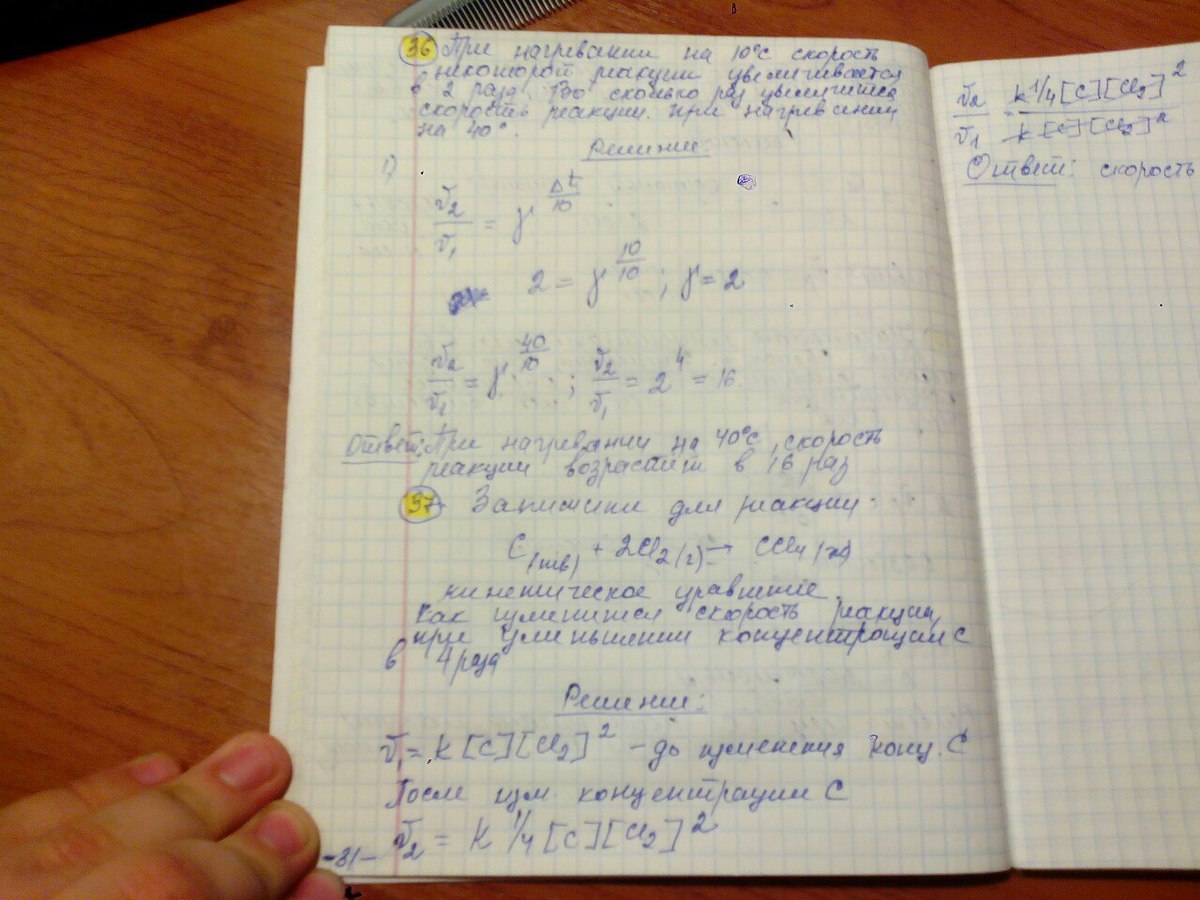 36 При нагревании на 10°С скорость
некоторой реакции увеличивается
в 2 раза. Во сколько раз увеличится
скорость реакции при нагревании
на 40°.
Решение:
1)
v₂/v₁ = γ^(Δt/10)
2 = γ^(10/10); γ = 2
v₂/v₁ = γ^(40/10); v₂/v₁ = 2⁴ = 16
Ответ: При нагревании на 40°С скорость
реакции возрастёт в 16 раз
37 Запишите для реакции
C(тв) + 2Cl₂(г) → CCl₄(ж)
кинетическое уравнение.
Как изменится скорость реакции
при уменьшении концентрации С
в 4 раза
Решение:
v₁ = k[C][Cl₂]² – до изменения конц. С
После изм. концентрации С
v₂ = k 1/4[C][Cl₂]²
-31-
v₂/v₁ = k 1/4[C][Cl₂]²/k[C][Cl₂]²
Ответ: скорость